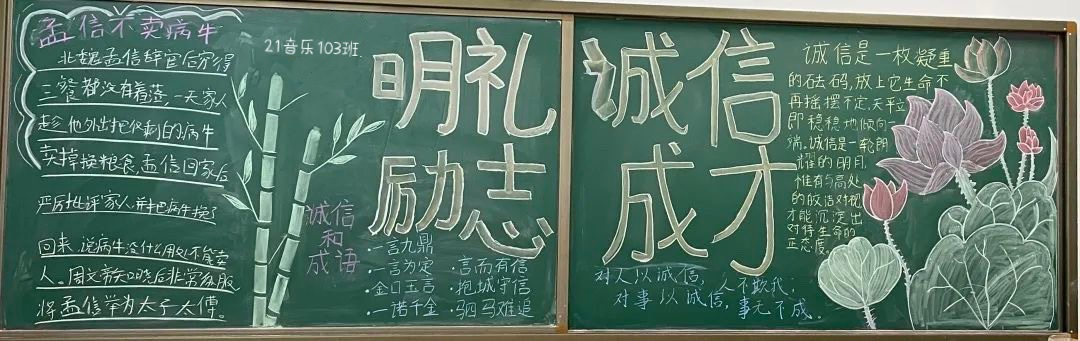 孟信不卖病牛
北魏孟信辞官后穷得
三餐都没有着落,一天家人
趁他外出把仅剩的病牛
卖掉换粮食,孟信回家后
严厉批评家人,并把病牛换了
回来,说病牛没什么用处不能卖
人。周文帝知晓后非常佩服
将孟信举为太子太傅。
21音乐103班
诚信
和
成语
明礼
励志
·一言九鼎
·一言为定
·金口玉言
·一诺千金
·言而有信
·抱诚守信
·驷马难追
诚信
成才
对人以诚信,人不欺我,
对事以诚信,事无不成。
诚信是一枚凝重
的砝码,放上它生命不
再摇摆不定,天平立
即稳稳地倾向一
端。诚信是一轮朗
耀的明月,
惟有与高处
的皎洁对视
才能沉淀出
对待生命的
正态度。